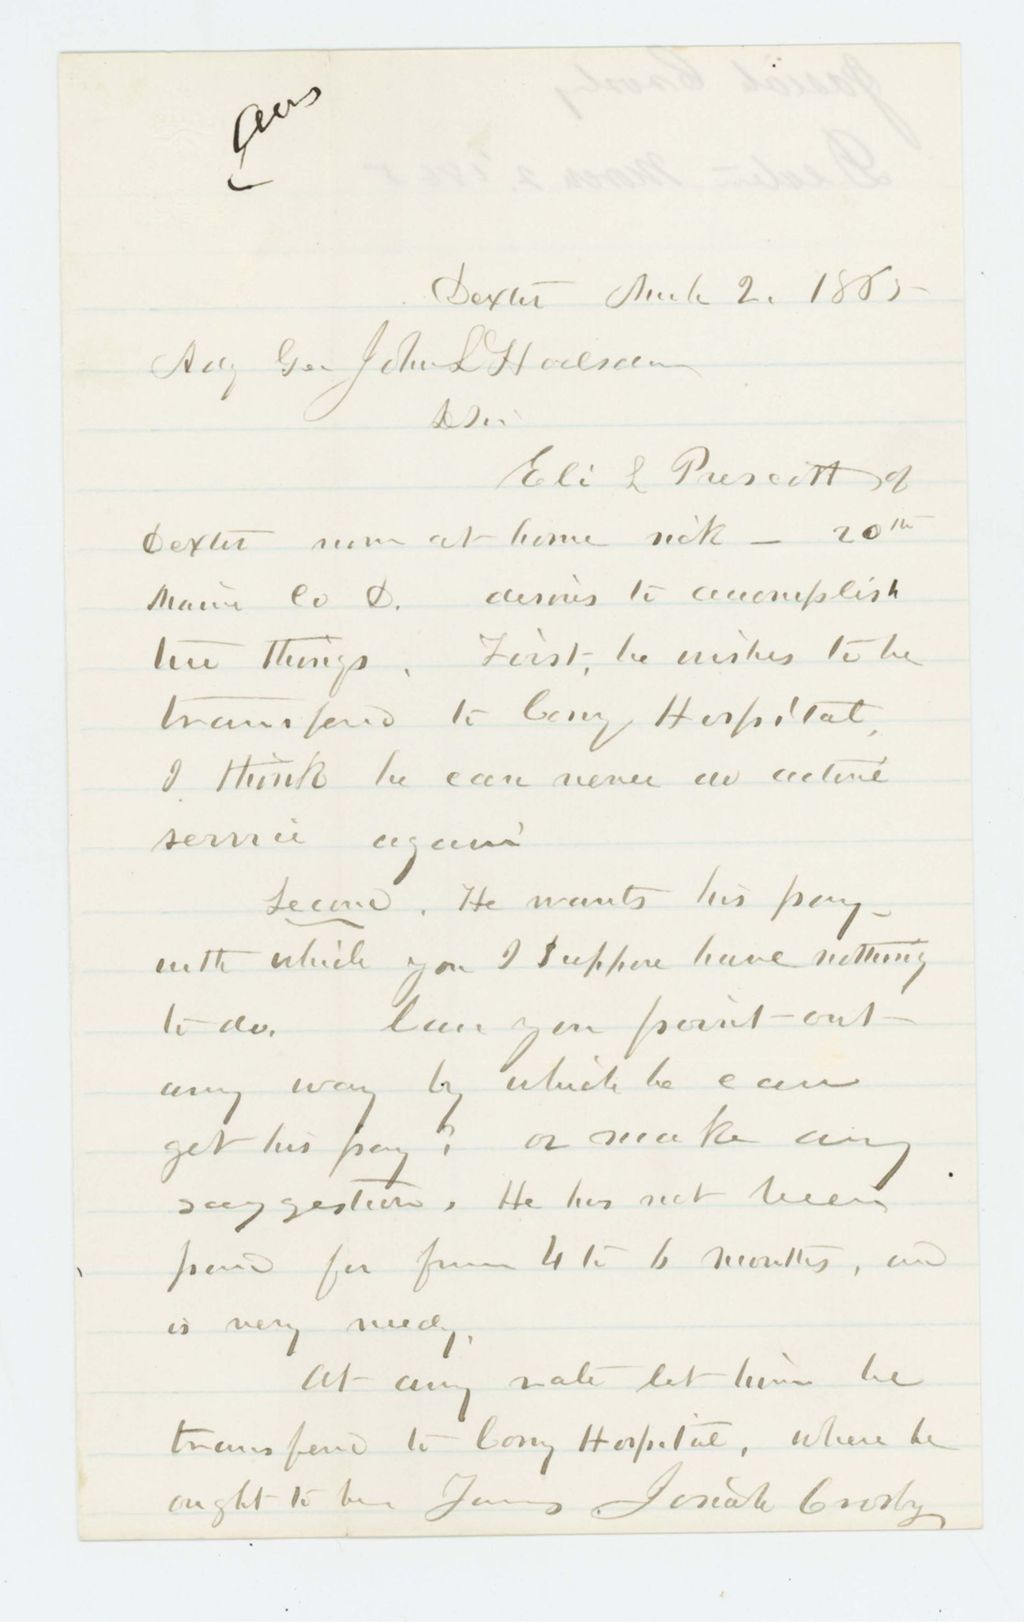 Ans
Dexter March 2. 1865
Adj Gen John L Hodsdon
D Sir
Eli L Prescott of
Dexter now at home sick — 20th
Maine Co D. desires to accomplish
two things. First, he wishes to be
transferd to Cony Hospital,
I think he can never do active
service again
Second. He wants his pay—
with which you I suppose have nothing
to do. Can you point out
any way by which he can
get his pay? or make any
suggestion. He has not been
paid for from 4 to 6 months, and
is very needy.
At any rate let him be
transferd to Cony Hospital, where he
ought to be Yours Josiah Crosby